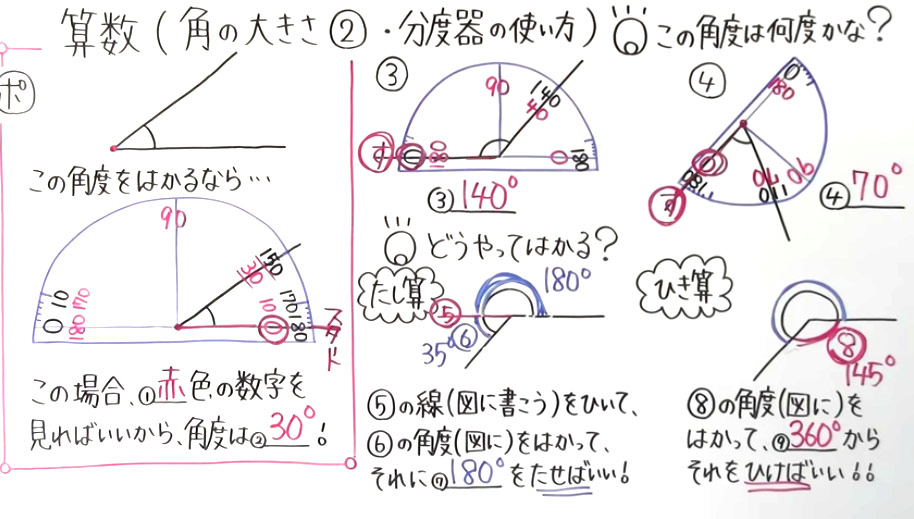 算数(角の大きさ②・分度器の使い方)
この角度は何度かな?
ポ
この角度をはかるなら…
90
0 10
180 170
150
30
10
170
0
180
スタート
この場合、①赤色の数字を
見ればいいから、角度は②30°!
③
90
140
40
ス
0
180
0
180
③140°
どうやってはかる?
たし算
180°
⑤
⑥
35°
⑤の線(図に書こう)をひいて、
⑥の角度(図に)をはかって、
それに⑦180°をたせばいい!
④
0
180
0
180
70
110
90
ス
④70°
ひき算
⑧
145°
⑧の角度(図に)を
はかって、⑨360°から
それをひけばいい!!